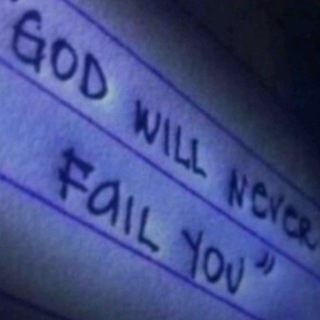 "GOD WILL NEVER
FAIL YOU"